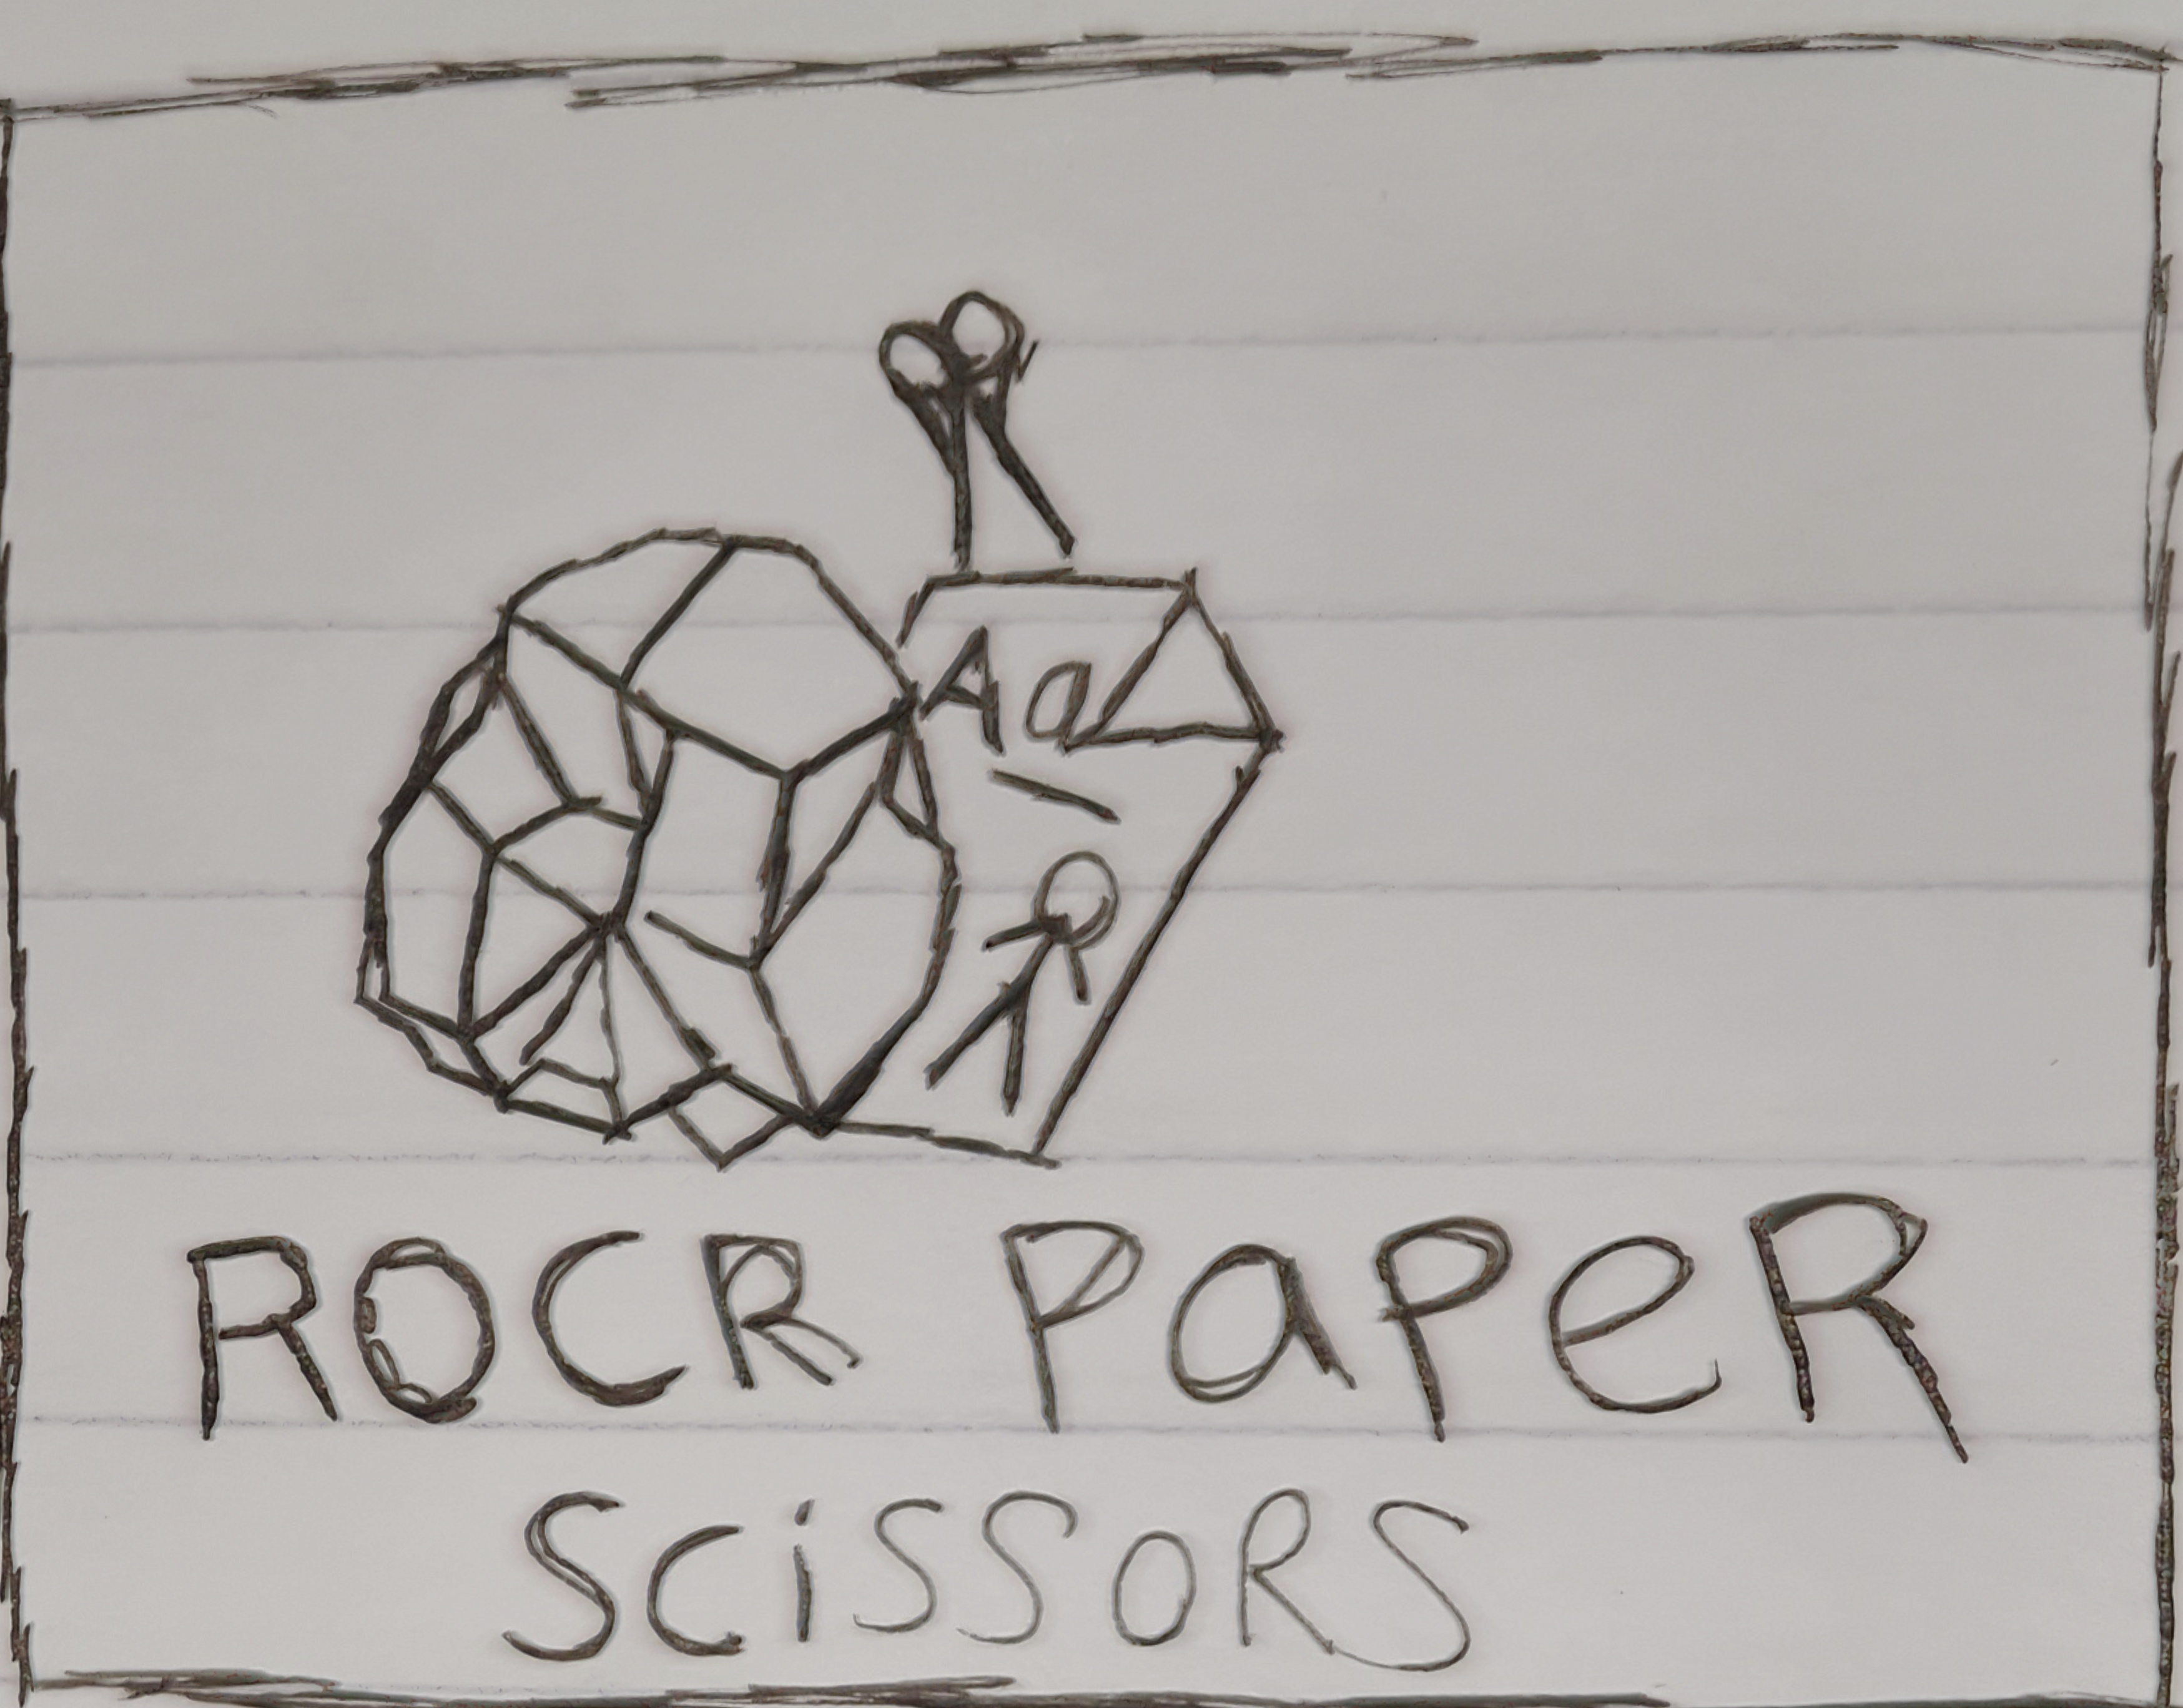 Aa
ROCR PaPeR
SCiSSORS